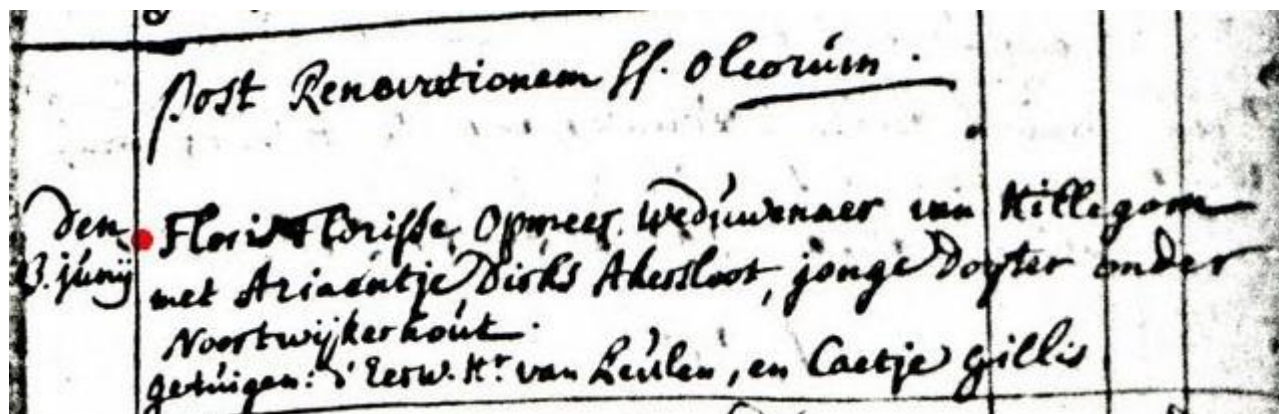 Post Renovationem SS. Oleorúm.
den Floris Florisse Opmeer Wedúwenaer van Hillegom
13. júnij met Ariaentje Dirks Akersloot, jonge Dogter onder
Noortwijkerhoút.
getúigen: d'Eerw. Hr. van Leúlen, en Caetje Gillis